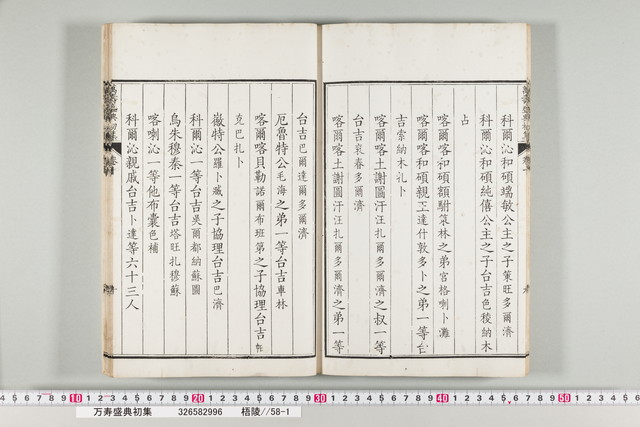 科爾沁和碩端敏公主之子策旺多爾濟
科爾沁和碩純僖公主之子台吉色稜納木
占
喀爾喀和碩額駙策林之弟宮格喇卜灘
喀爾喀和碩親王達什敦多卜之弟一等台
吉索納木礼卜
喀爾喀土謝圖汗汪扎爾多爾濟之叔一等
台吉袞春多爾濟
喀爾喀土謝圖汗汪扎爾多爾濟之弟一等
台吉巴爾達爾多爾濟
厄魯特公毛海之弟一等台吉車林
喀爾喀貝勒諾爾布班第之子協理台吉
克巴扎卜
巖特公羅卜藏之子協理台吉巴濟
科爾沁一等台吉吳爾都納蘇圖
烏朱穆秦一等台吉塔旺扎穆蘇
喀喇沁一等他布囊色補
科爾沁親戚台吉卜達等六十三人
10 20 30 40 50
万寿盛典初集 326582996 梧陵//58-1